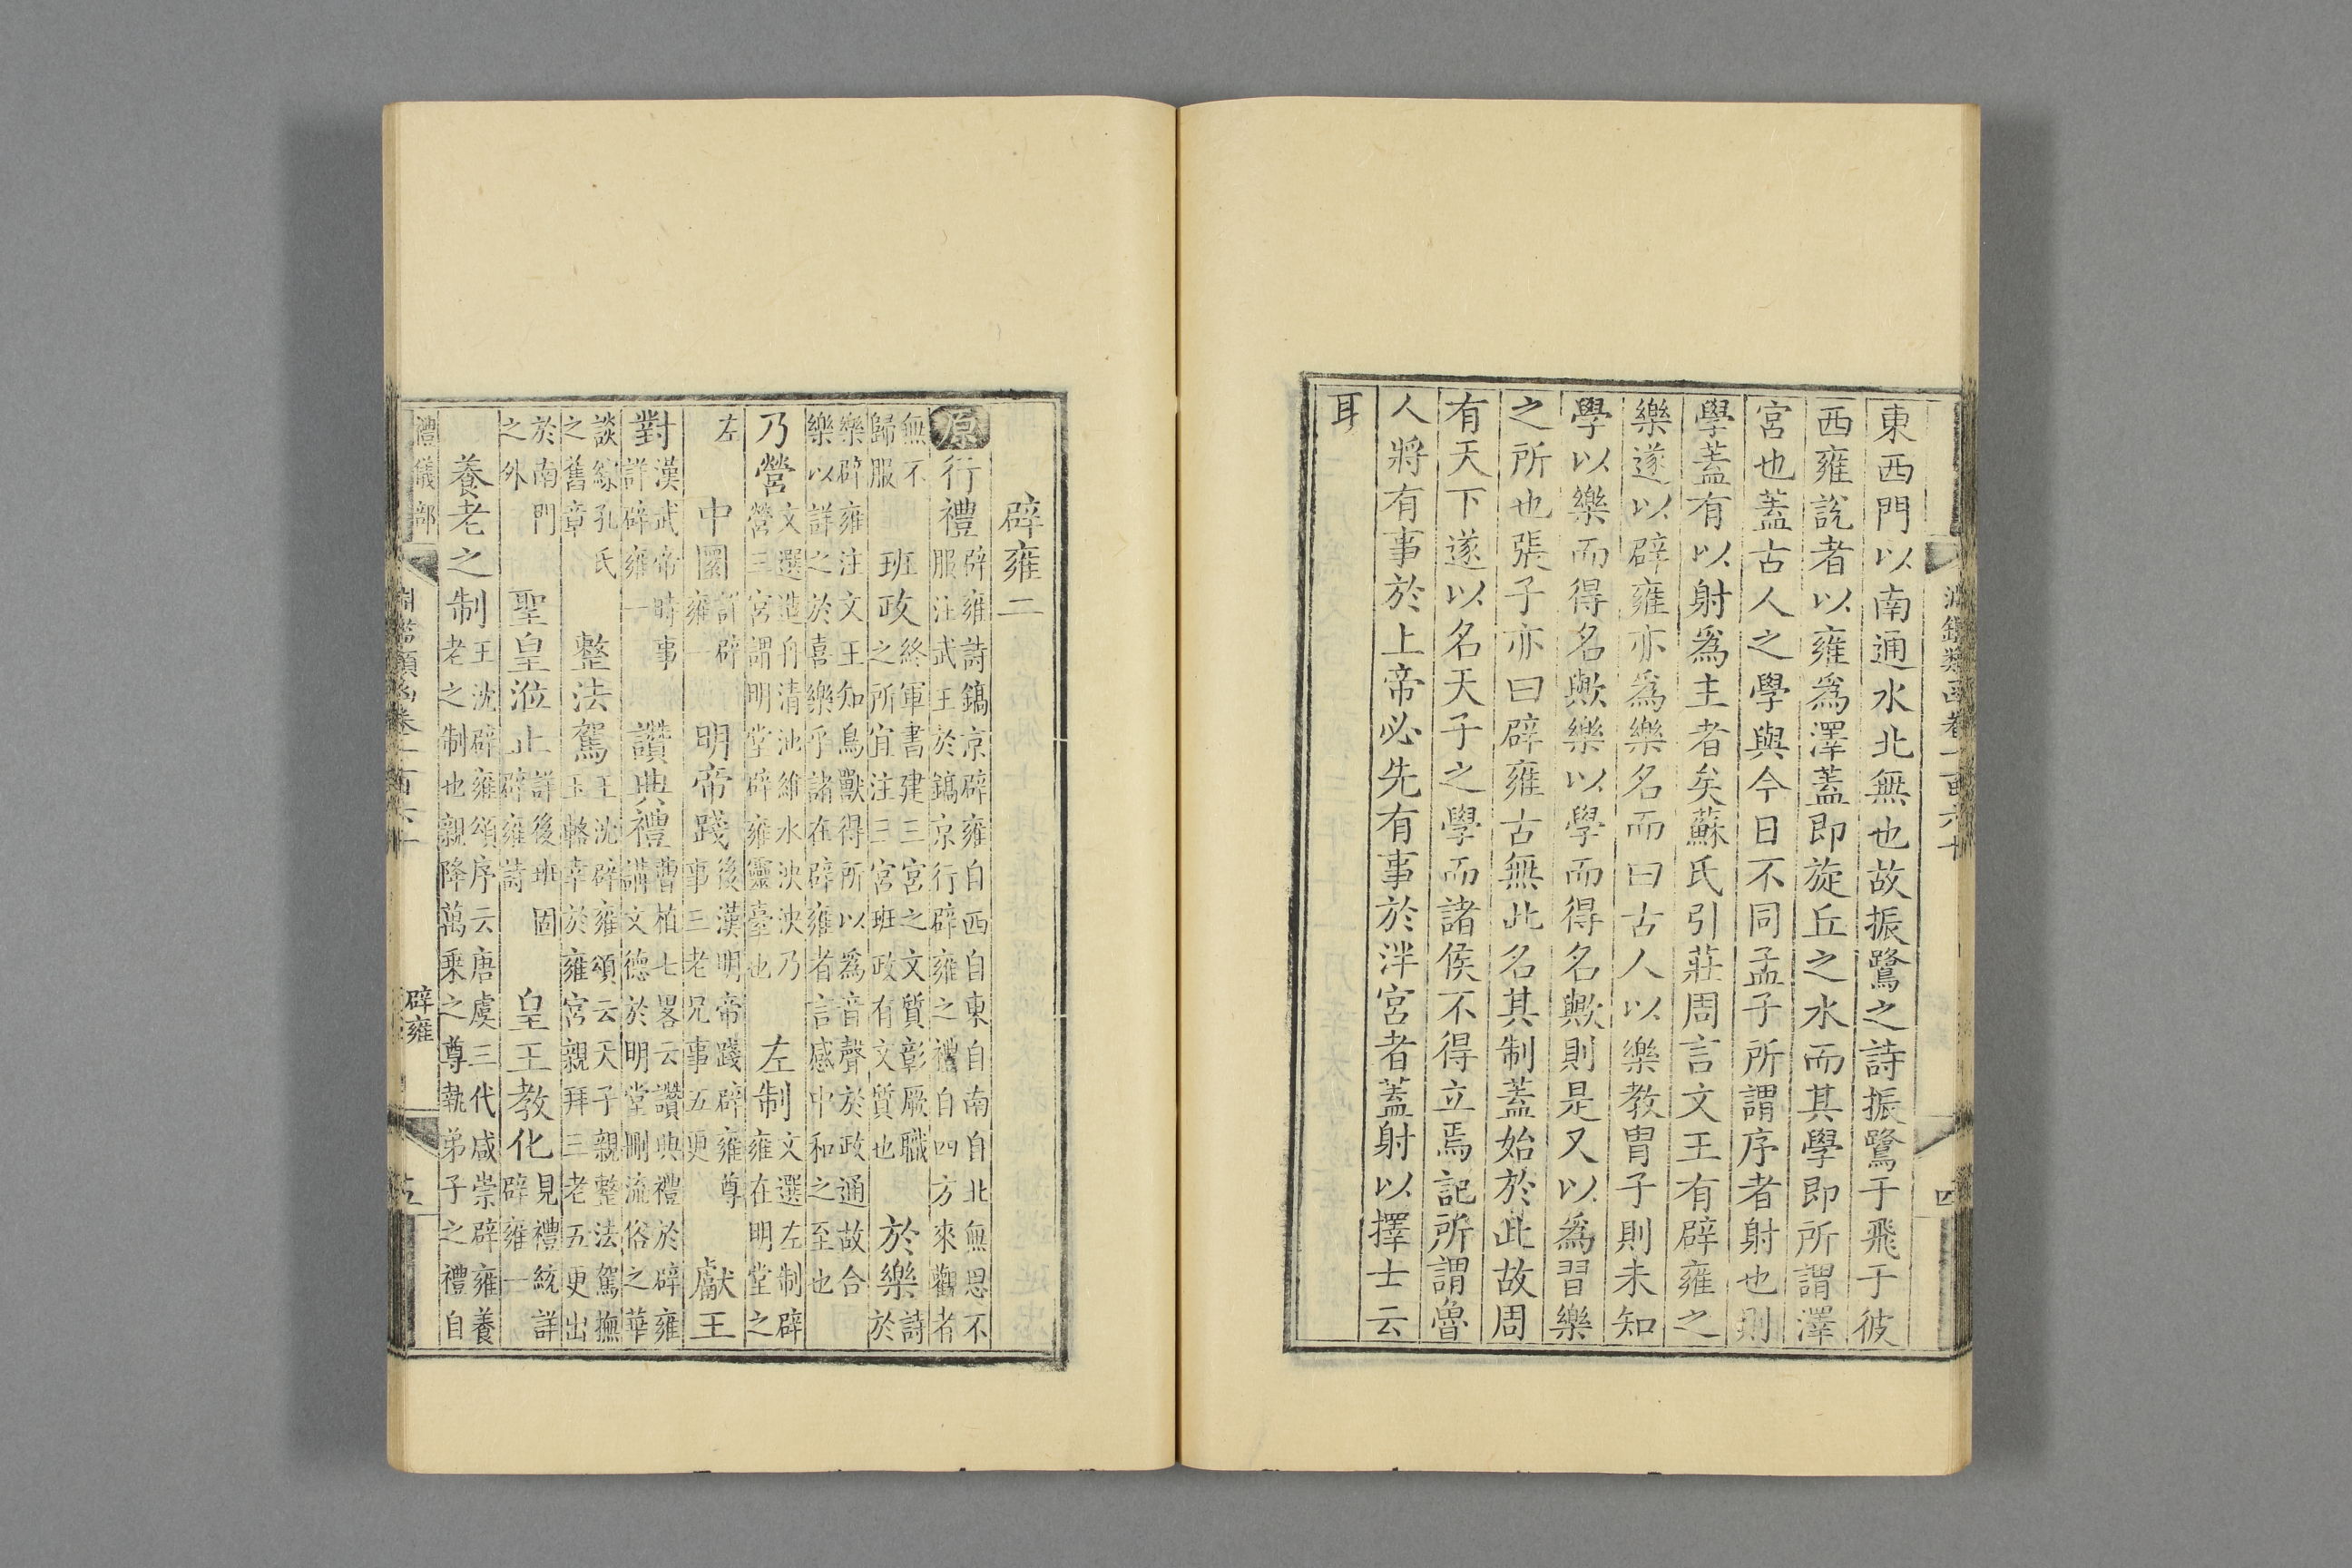 淵鑑類函卷一百六十
四
東西門以南通水北無也故振鷺之詩振鷺于飛于彼
西雍說者以雍爲澤蓋即旋丘之水而其學即所謂澤
宮也蓋古人之學與今日不同孟子所謂序者射也則
學蓋有以射爲主者矣蘇氏引莊周言文王有辟雍之
樂遂以辟雍亦爲樂名而曰古人以樂教胄子則未知
學以樂而得名歟樂以學而得名歟則是又以爲習樂
之所也張子亦曰辟雍古無此名其制蓋始於此故周
有天下遂以名天子之學而諸侯不得立焉記所謂魯
人將有事於上帝必先有事於泮宮者蓋射以擇士云
耳
辟雍二
原行禮辟雍詩鎬京辟雍自西自東自南自北無思不
服注武王於鎬京行辟雍之禮自四方來觀者
無不
歸服 班政終軍書建三宮之文質彰厥職
之所宜注三宮班政有文質也 於樂詩
於
樂辟雍注文王知鳥獸得所以爲音聲於政通故合
樂以詳之於喜樂乎諸在辟雍者言感中和之至也
乃營文選造舟清池維水泱泱乃
營三宮謂明堂辟雍靈臺也 左制文選左制辟
雍在明堂之
左 中圜詳辟
雍一 明帝踐後漢明帝踐辟雍尊
事三老兄事五更 獻王
對漢武帝時事
詳辟雍一 讚典禮曹植七畧云讚典禮於辟雍
講文德於明堂刪流俗之華
談綜孔氏
之舊章 整法駕王沈辟雍頌云天子親整法駕撫
玉輅幸於雍宮親拜三老五更出
於南門
之外 聖皇涖止詳後班固
辟雍詩 皇王教化見禮統詳
辟雍一
養老之制王沈辟雍頌序云唐虞三代咸崇辟雍養
老之制也親降萬乗之尊執弟子之禮自
禮儀部
淵鑑類函卷一百六十
辟雍
五